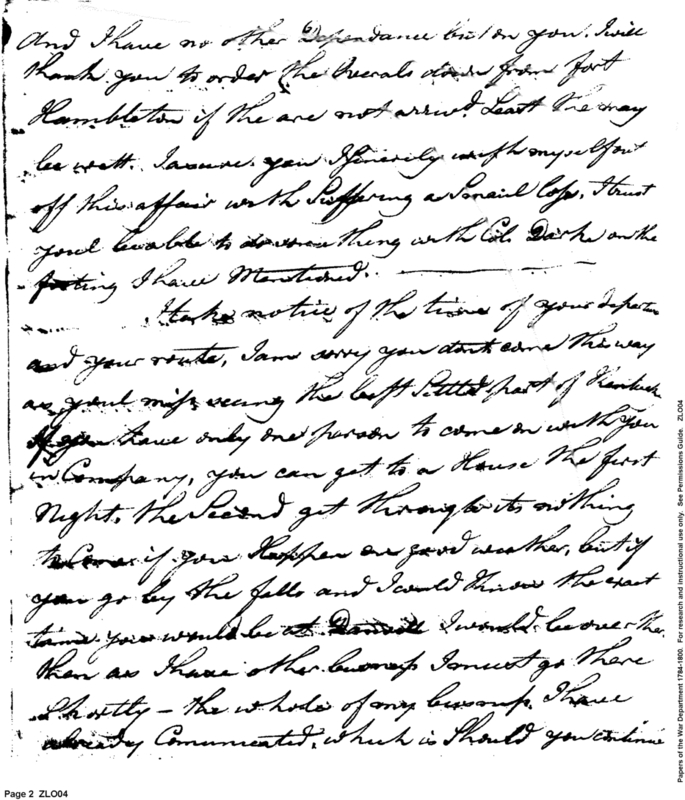 And I have no other Dependance but on you. I will
thank you to order the Overals down from fort
Hambleton if the are not arivd. Least the may
be wett. I asure you I Sincerily wish myself out
off this affair with Suffering a Smail Loss, I trust
youl be able to do some thing with Col. Darke on the
footing I have Mentioned.
I take notice of the time of your departure
and your route, I am sorry you dont come this way
as youl miss seeing the best Settld part of Kentuck
If you have only one person to come on with you
in Company, you can get to a House the first
Night, the Second get through its nothing
to Come if you Happen on good weather, but if
you go by the falls and I could know the exact
time you would be at I would be over the
then as I have other business I must go there
Shortly – the whole of my business I have
already Comunicated, which is Should you continue
Page 2 ZLO04
Papers of the War Department 1784-1800. For research and instructional use only. See Permissions Guide. ZLO04